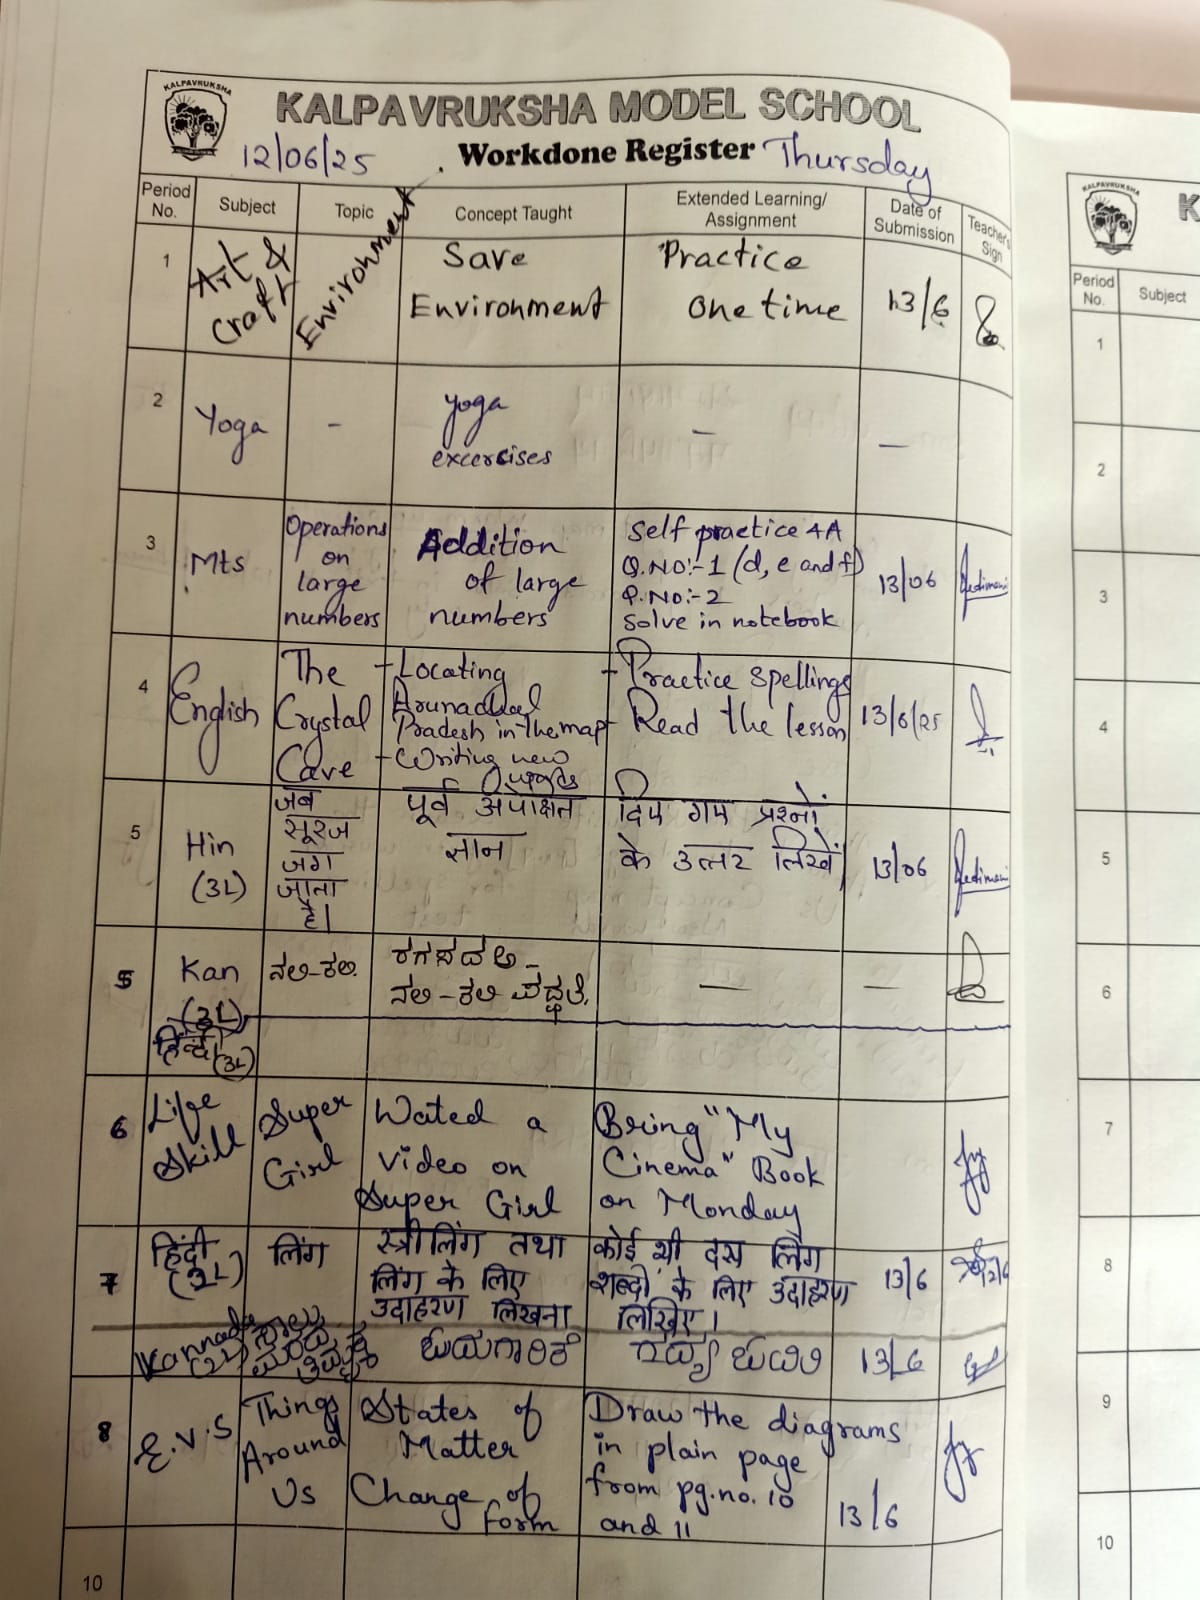 KALPAVRUKSHA
KALPAVRUKSHA MODEL SCHOOL
12/06/25 Workdone Register Thursday
Period No. Subject Topic Concept Taught Extended Learning/ Assignment Date of Submission Teacher's Sign
1 Art & Craft Environment Save Environment Practice One time 13/6
2 Yoga - Yoga excercises - -
3 Mts Operations on large numbers Addition of large numbers Self practice 4A
Q.NO:-1 (d, e and f)
Q.NO:-2
Solve in notebook 13/06
4 English The Crystal Cave - Locating Arunachal Pradesh in the map
- Writing new words
- Practice spellings
- Read the lesson 13/6/25
5 Hin (3L) जब सूरज जग जाता है। पूर्व अपेक्षित ज्ञान दिए गए प्रश्नों के उत्तर लिखें 13/06
5 Kan (3L) ನಲಿ-ಕಲಿ ರಗಸದಅ - ನಲಿ-ಕಲಿ ಪದ್ಧತಿ. — —
हिन्दी (3L)
6 Life Skill Super Girl Wated a video on Super Girl Bring "My Cinema" Book on Monday
7 हिंदी (2L) लिंग स्त्रीलिंग तथा लिंग के लिए उदाहरण लिखना कोई भी दस लिंग शब्दों के लिए उदाहरण लिखिए। 13/6
Kannada (2L) 13/6
8 E.V.S Things Around Us States of Matter
Change of form Draw the diagrams in plain page from pg.no. 10 and 11 13/6
10
KALPAVRUKSHA
K
Period No. Subject
1
2
3
4
5
6
7
8
9
10